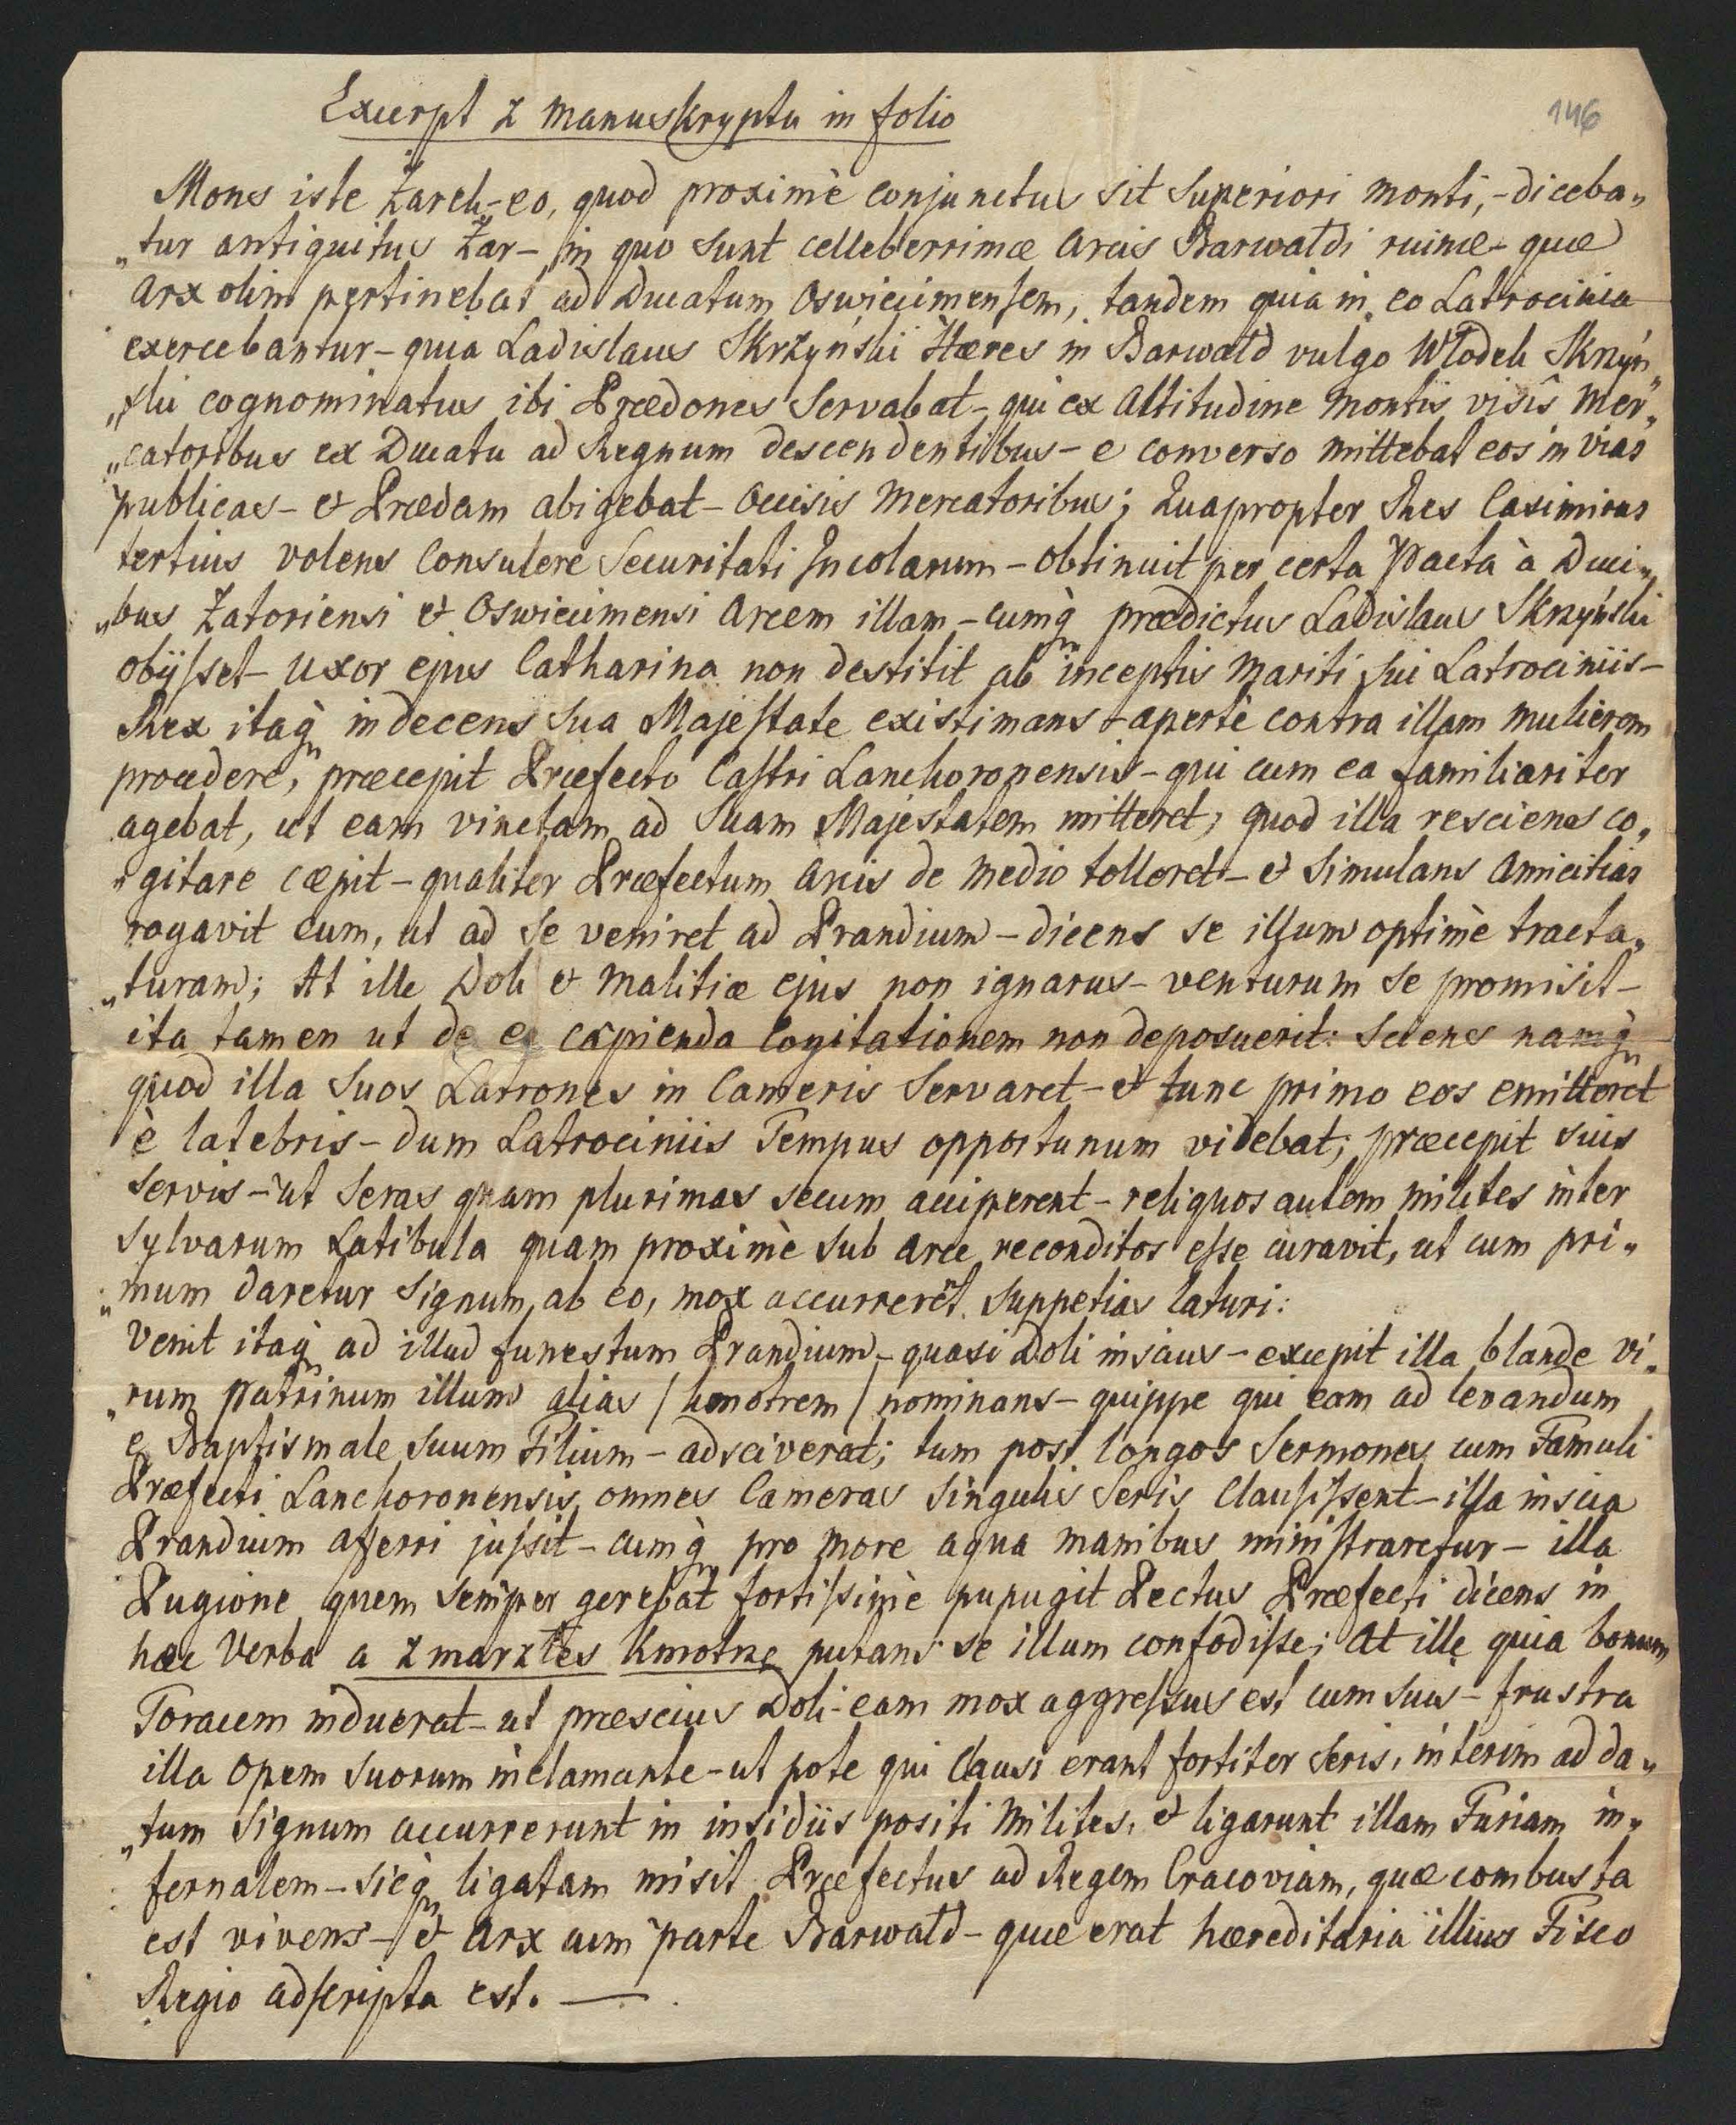 Excerpt z manuskryptu in folio
146
Mons iste Żarek - eo, quod proximè conjunctus sit superiori monti, - diceba„
„tur antiquitus Żar - in quo sunt celleberrimæ Arcis Barwałdi ruinæ - quæ
Arx olim pertinebat ad Ducatum Oswiecimensem, tandem quia in eo Latrocinia
exercebantur - quia Ladislaus Skrzyński Hæres in Barwałd vulgo Włodek Skrzyń„
„ski cognominatus ibi Prædones Servabat - qui ex altitudine montis visîs Mer„
„catoribus ex Ducatu ad Regnum descendentibus - e converso mittebat eos in vias
publicas - et Prædam abigebat - occisis Mercatoribus; Quapropter Rex Casimirus
tertius volens Consulere Securitati Incolarum - obtinuit per certa Pacta à Duci„
„bus Zatoriensi et Oswiecimensi Arcem illam - cumq̀ prædictus Ladislaus Skrzyński
obijsset - uxor ejus Catharina non destitit ab inceptis Mariti sui Latrociniis -
Rex itaq̀ indecens sua Majestate existimans - apertè contra illam mulierem
procedere, præcepit Præfecto Castri Lanchoronensis - qui cum ea familiariter
agebat, ut eam vinctam ad Suam Majestatem mitteret; quod illa resciens co„
„gitare cæpit - qualiter Præfectum Arcis de medio tolleret - et Simulans Amicitias
rogavit eum, ut ad se veniret ad Prandium - dicens se illum optimè tracta„
„turam; At ille Doli et Malitiæ ejus non ignarus - venturum se promisit -
ita tamen ut de ea capienda Cogitationem non deposuerit: Sciens namq̀
quod illa Suos Latrones in Cameris Servaret - et tunc primo eos emitteret
è latebris - dum Latrociniis Tempus opportunum videbat; præcepit suis
Servis - ut Seras quam plurimas secum acciperent - reliquos autem milites inter
Sylvarum Latibula quam proximè sub arce reconditos esse curavit, ut cum pri„
„mum daretur Signum, ab eo, mox accurrerēt suppetias laturi:
Venit itaq̀ ad illud funestum Prandium - quasi Doli inscius - excepit illa blande vi„
„rum Patrinum illum alias / kmotrem / nominans - quippe qui eam ad levandum
e Baptismale Suum Filium - adsciverat; tum post longos Sermones cum Famuli
Præfecti Lanchoronensis omnes Cameras Singulis Seris Clausissent - illa inscia
Prandium afferri jussit - cumq̀ pro more aqua manibus ministraretur - illa
Pugione quem semper gerebat fortissimè pupugit Pectus Præfecti dicens in
hæc Verba a zmarzłes Kmotrze putans se illum confodisse; at ille quia bonum
Toracem induerat - ut præscius Doli - eam mox aggressus est cum suis - frustra
illa opem suorum inclamante - ut pote qui Clausi erant fortiter Seris, interim ad da„
„tum Signum accurrerunt in insidiis positi Milites, et ligarunt illam Furiam in„
fernalem - sicq̀ ligatam misit Præfectus ad Regem Cracoviam, quæ combusta
est vivens - et Arx cum parte Barwałd - quæ erat hæreditaria illius Fisco
Regio adscripta est. —